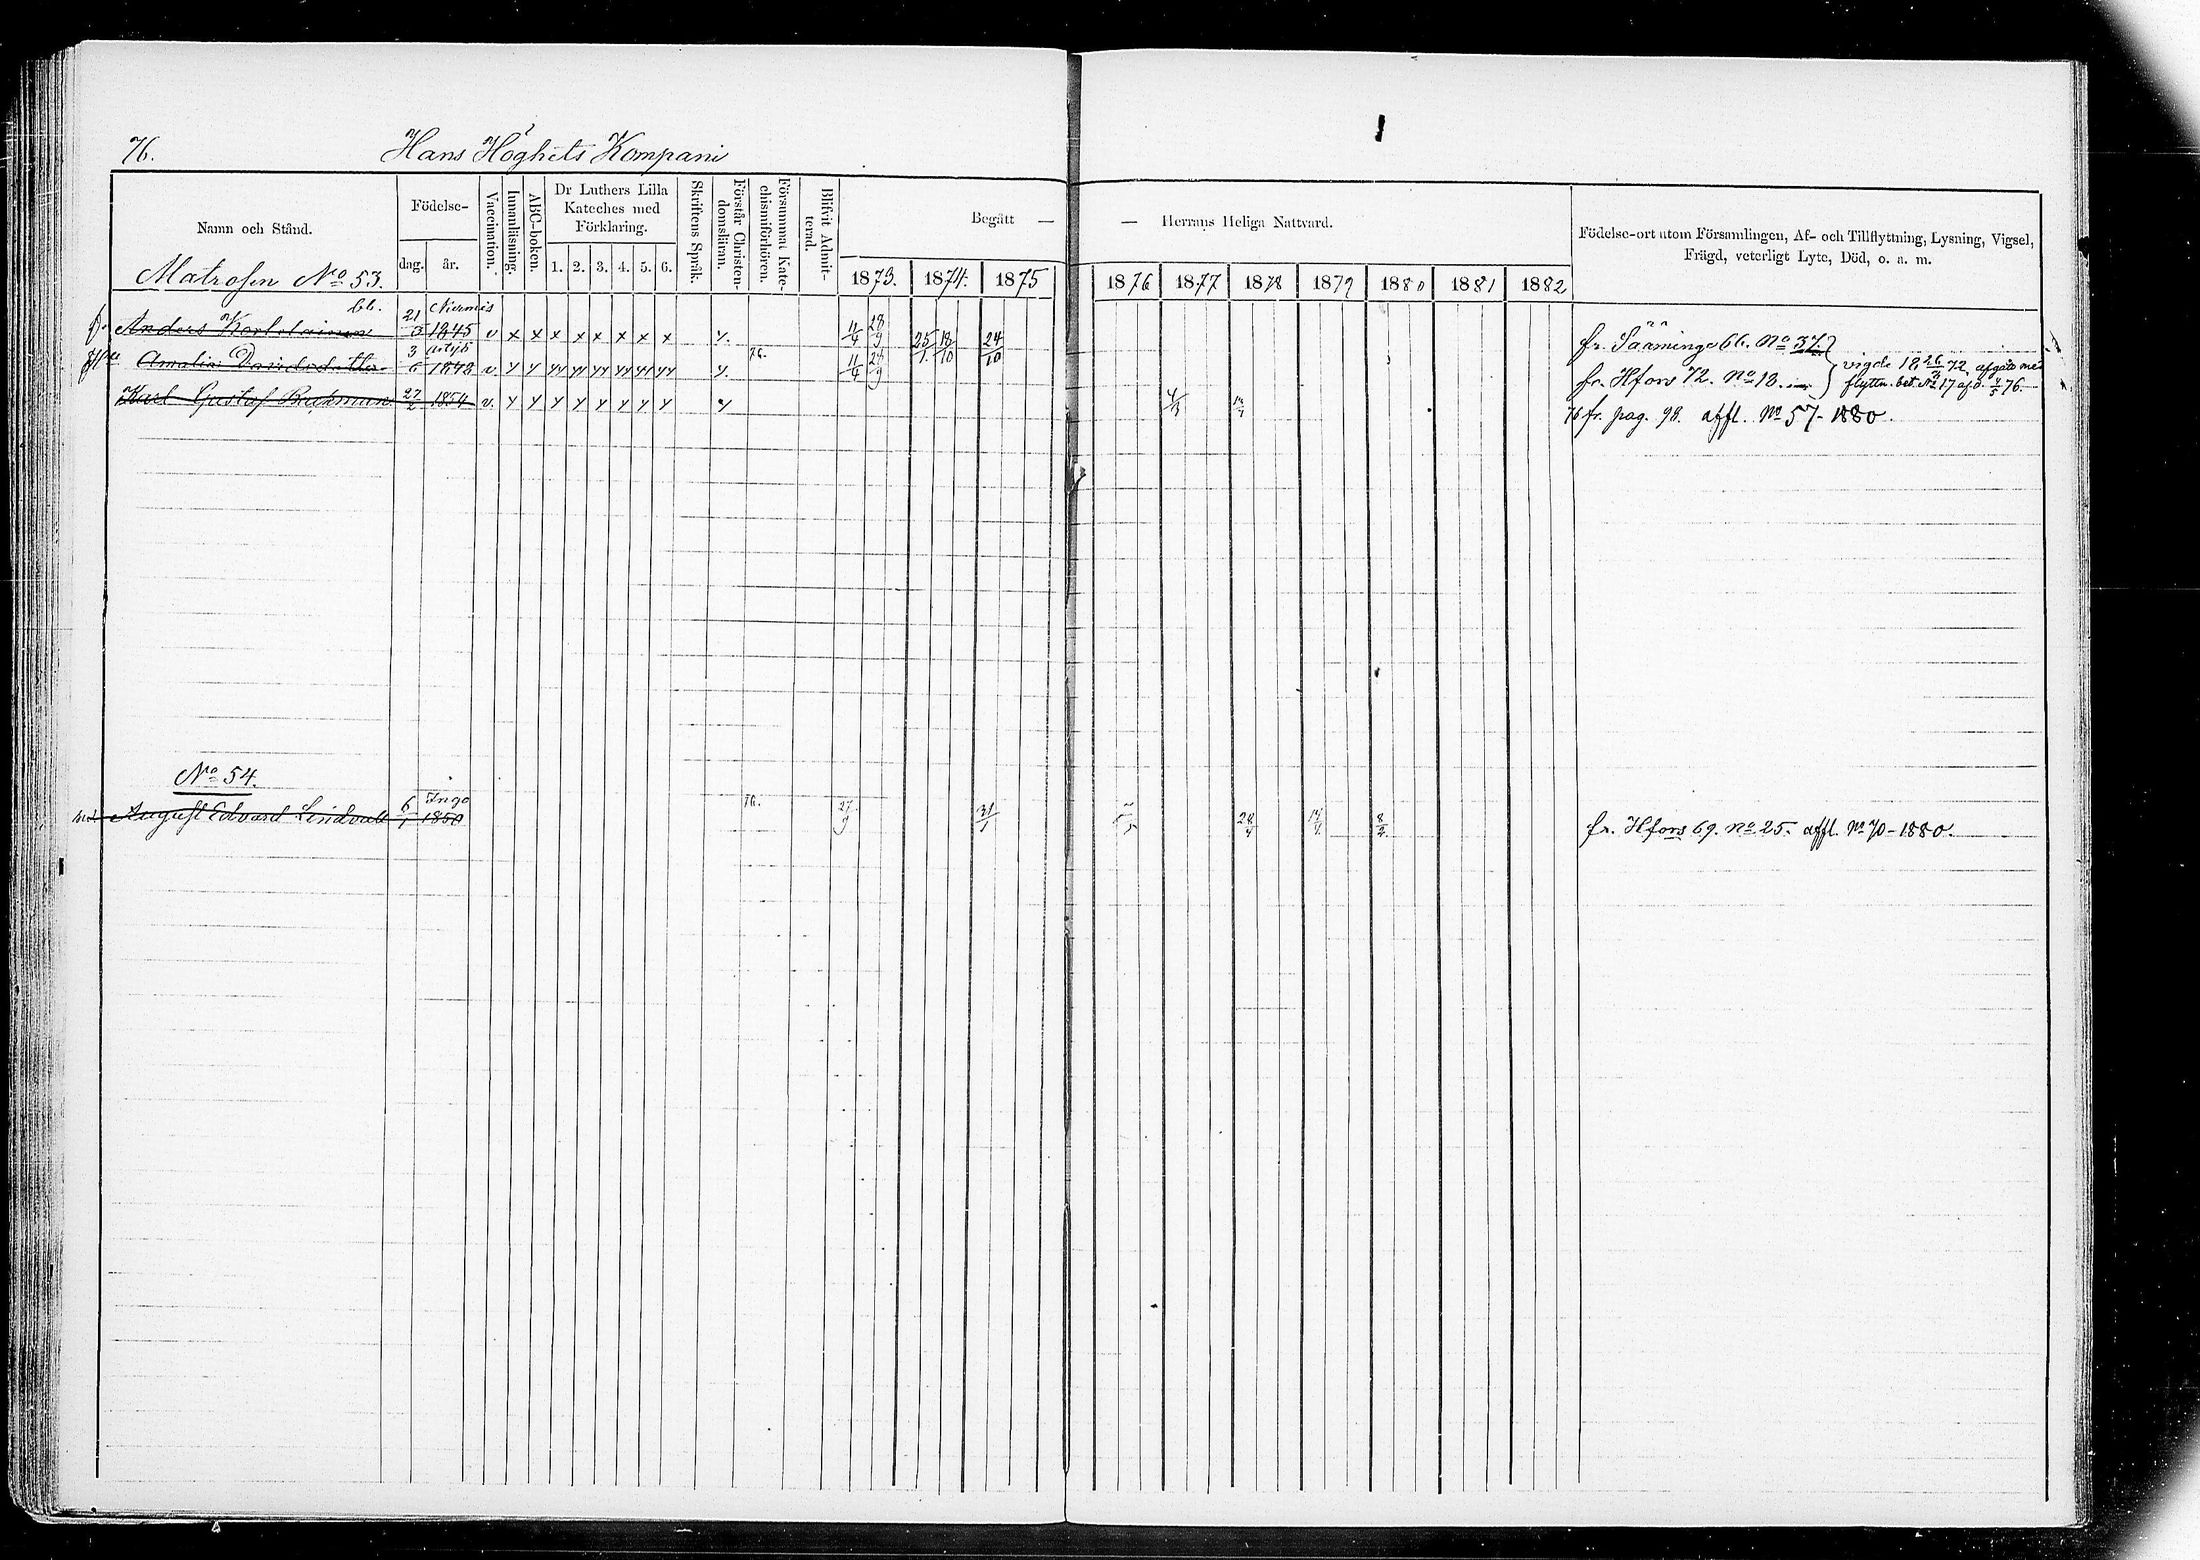 76. Hans Höghets Kompani
Namn och Stånd.
Födelse-
dag. år.
Vaccination.
Innanläsning.
ABC-boken.
Dr Luthers Lilla
Kateches med
Förklaring.
1. 2. 3. 4. 5. 6.
Skriftens Språk.
Förstår Christen-
domsläran.
Försummat Kate-
chismiförhören.
Blifvit Admit-
terad.
Begått —
— Herrans Heliga Nattvard.
1873. 1874. 1875 1876 1877 1878 1879 1880 1881 1882
Födelse-ort utom Församlingen, Af- och Tillflyttning, Lysning, Vigsel,
Frägd, veterligt Lyte, Död, o. a. m.
Matrosen No 53.
Anders 21 1845 v x x x x x x x x 11/4 28/9 25/1 18/10 24/10 fr. Sääminge 66. No 37.
Amalia Davidsdotter 3/6 1848 v. 76. 11/4 28/9 fr. Hfors 72. No 18. vigde 18 26/3 72, afgåto med
flyttn. bet. No 17 af d. 76.
Karl Gustaf 27/2 1854 v. 4/3 76 fr. pag. 98. affl. No 57 - 1880.
No 54.
August Edvard Lindvall 6/1 Ingo 1850 76. 27/9 31/1 28/4 8/2 fr. Hfors 69. No 25. affl. No 70 - 1880.